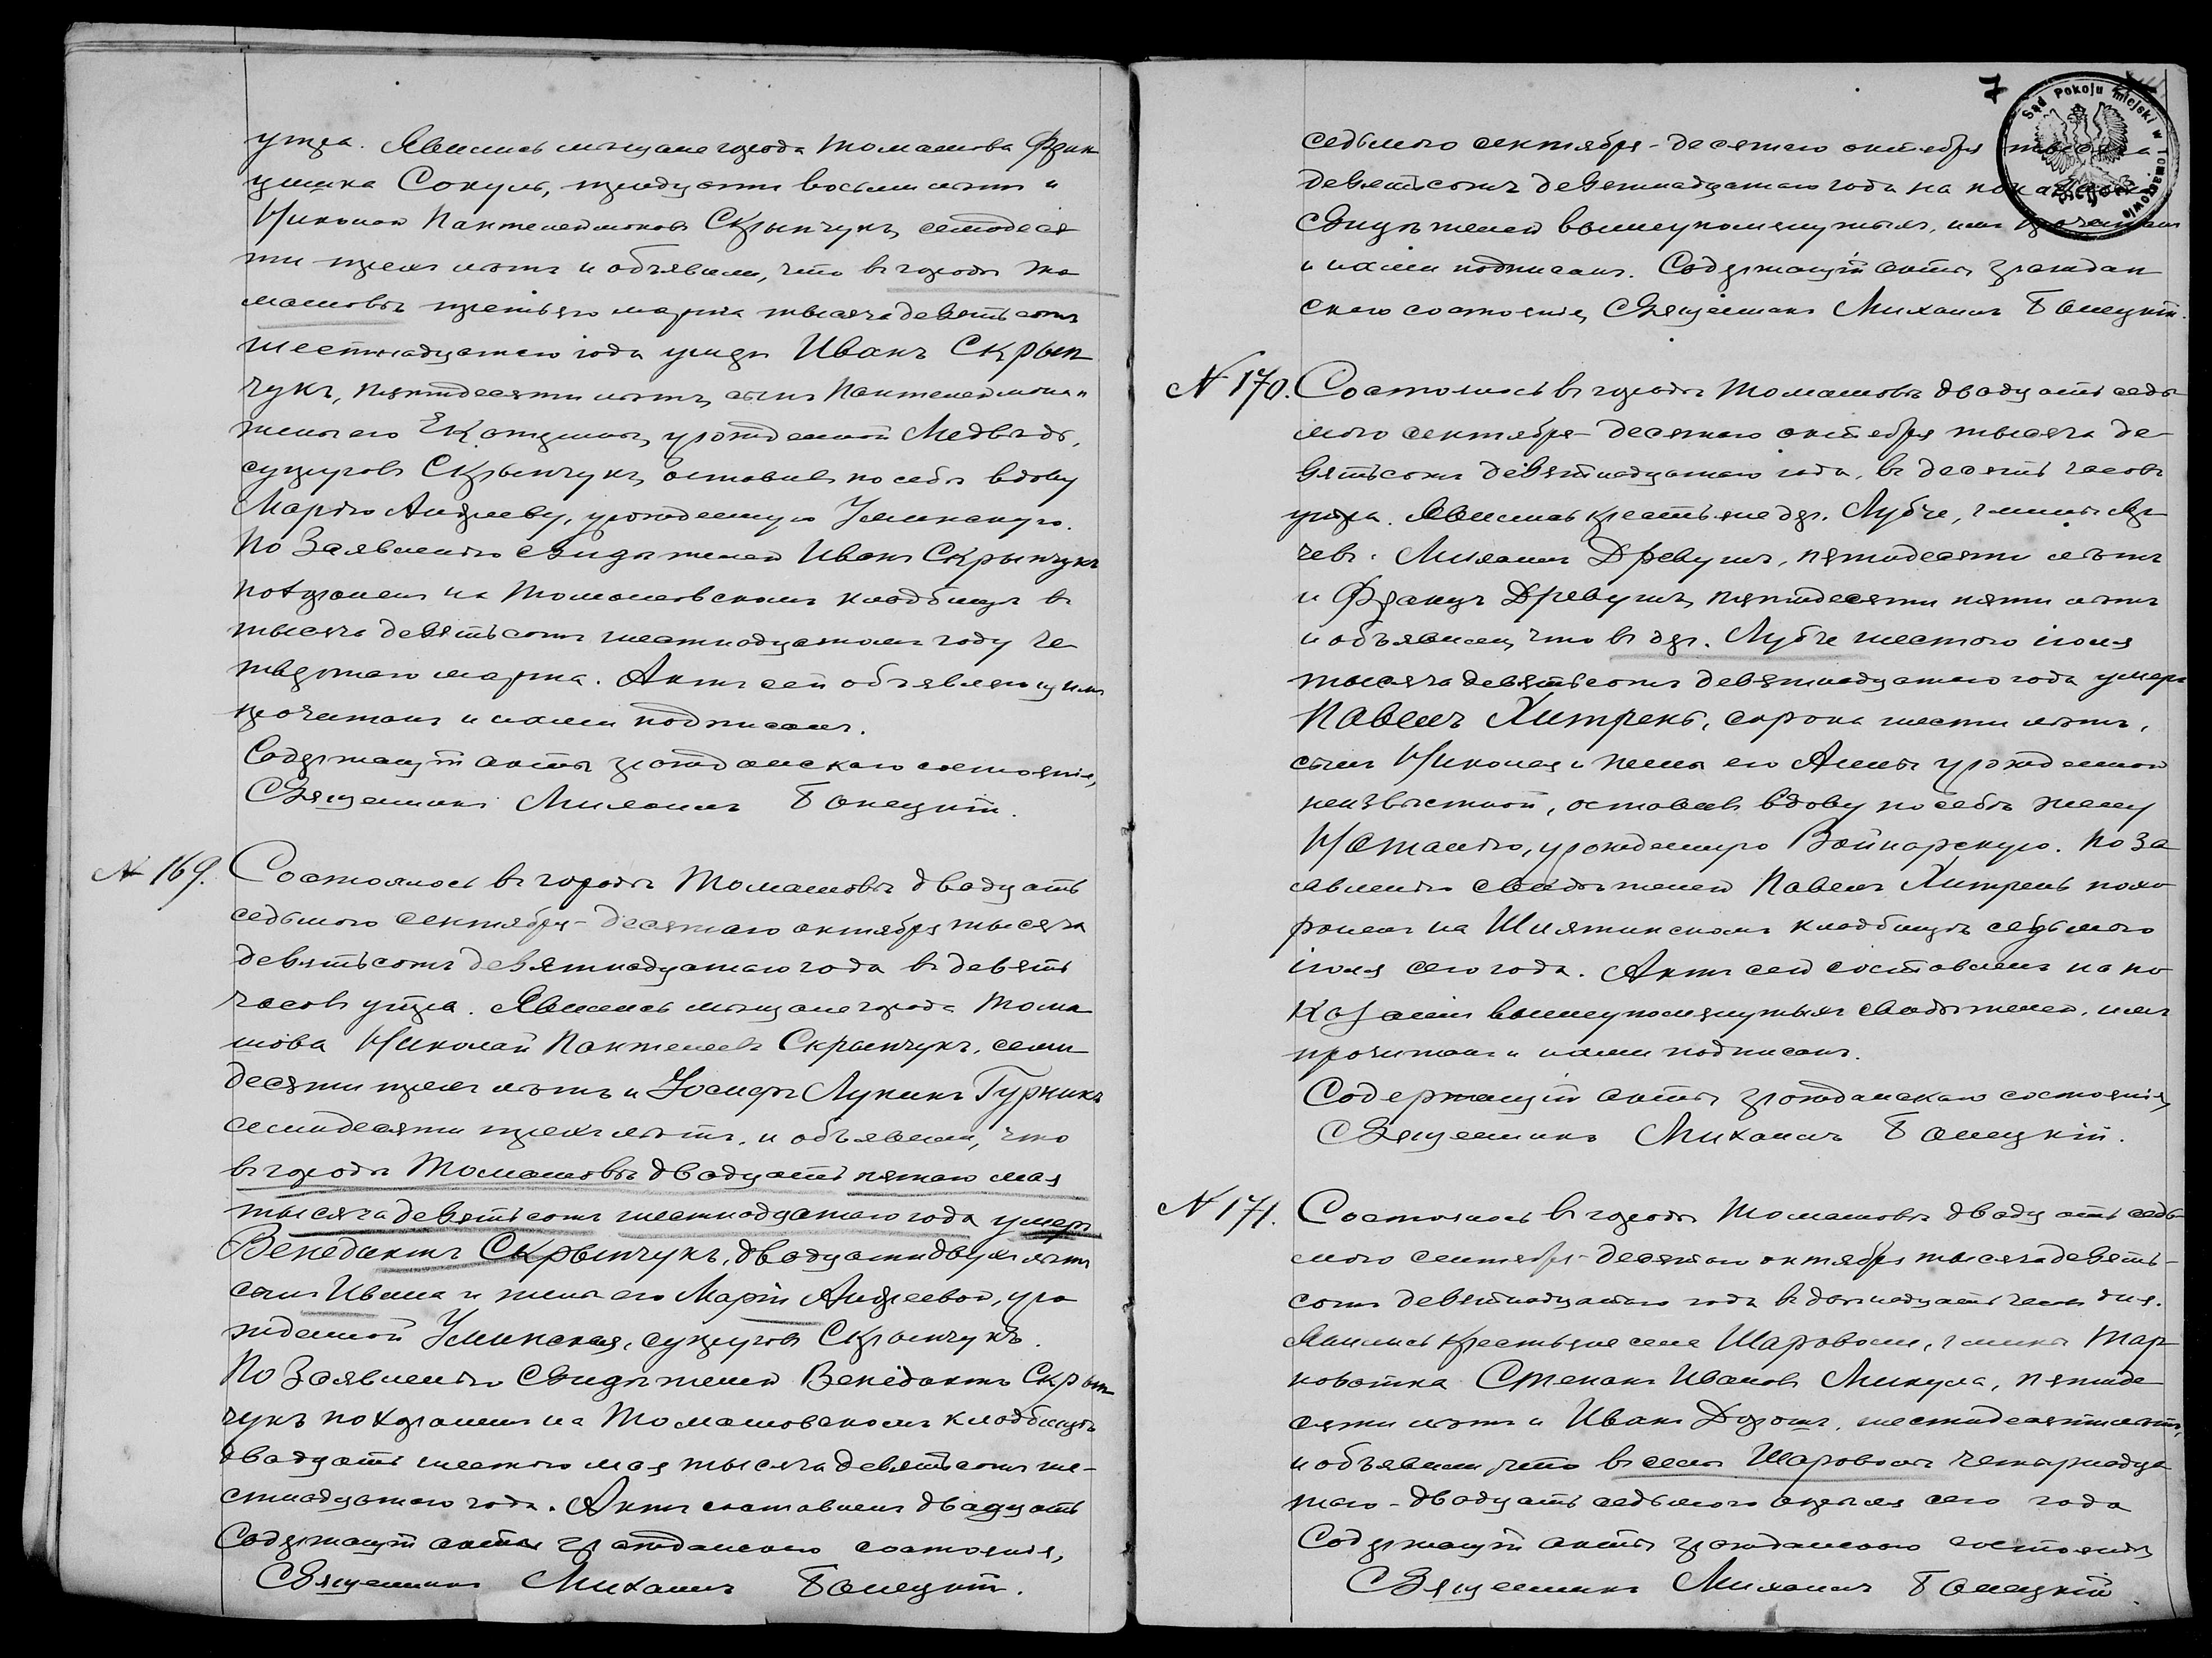 утра. Явились мѣщане города Томашова Фран
цишка Сокулъ, тридцати восьми лѣтъ и
Николай Пантелеймоновъ Скрынчукъ, семидеся
ти трехъ лѣтъ и объявили, что въ городѣ То
машовѣ третьяго марта тысяча девятьсотъ
шестнадцатаго года умеръ Иванъ Скрын
чукъ, пятидесяти лѣтъ, сынъ Пантелеймона и
жены его Екатерины, урожденной Медвѣдь,
супруговъ Скрынчукъ, оставивъ по себѣ вдову
Марію Андрееву, урожденную
По заявленію свидѣтелей Иванъ Скрынчукъ
похороненъ на Томашовскомъ кладбищѣ въ
тысяча девятьсотъ шестнадцатомъ году че
твертаго марта. Актъ сей объявляющимъ
прочитанъ и нами подписанъ.
Содержащій акты гражданскаго состоянія,
Священникъ Михаилъ Бонецкій.
N 169. Состоялось въ городѣ Томашовѣ двадцать
седьмого сентября - десятаго октября тысяча
девятьсотъ девятнадцатаго года въ девять
часовъ утра. Явились мѣщане города Тома
шова Николай Пантелеевъ Скрынчукъ, семи
десяти трехъ лѣтъ и Іосифъ Лукинъ Гурникъ
семидесяти трехъ лѣтъ, и объявили, что
въ городѣ Томашовѣ двадцать пятаго мая
тысяча девятьсотъ шестнадцатаго года умеръ
Венедиктъ Скрынчукъ, двадцати двухъ лѣтъ
сынъ Ивана и жены его Маріи Андреевой, уро
жденной супруговъ Скрынчукъ.
По заявленію свидѣтелей Венедиктъ Скрын
чукъ похороненъ на Томашовскомъ кладбищѣ
двадцать шестого мая тысяча девятьсотъ ше-
стнадцатаго года. Актъ составленъ двадцать
Содержащій акты гражданскаго состоянія,
Священникъ Михаилъ Бонецкій.
7
Sąd Pokoju miejski w Tomaszowie
седьмого сентября - десятаго октября тысяча
девятьсотъ девятнадцатаго года на показаніи
свидѣтелей вышеупомянутыхъ, имъ прочитанъ
и нами подписанъ. Содержащій акты граждан
скаго состоянія, Священникъ Михаилъ Бонецкій.
N 170. Состоялось въ городѣ Томашовѣ двадцать седь
мого сентября - десятаго октября тысяча де-
вятьсотъ девятнадцатаго года, въ десять часовъ
утра. Явились крестьяне дер. Лубче, гмины Яр
чевъ: Михаилъ Древушъ, пятидесяти лѣтъ
и Францъ Древушъ, пятидесяти пяти лѣтъ
и объявили, что въ дер. Лубче шестого іюля
тысяча девятьсотъ девятнадцатаго года умеръ
Павелъ Хитрень, сорока шести лѣтъ,
сынъ Николая и жены его Анны урожденной
неизвѣстной, оставивъ вдову по себѣ жену
Наталію, урожденную Войнарскую. По за
явленію свидѣтелей Павелъ Хитрень похо
роненъ на Шлятинскомъ кладбищѣ седьмого
іюля сего года. Актъ сей составленъ на по
казаніи вышеупомянутыхъ свидѣтелей, имъ
прочитанъ и нами подписанъ.
Содержащій акты гражданскаго состоянія,
Священникъ Михаилъ Бонецкій.
N 171. Состоялось въ городѣ Томашовѣ двадцать седь
мого сентября - десятаго октября тысяча девять-
сотъ девятнадцатаго года въ двѣнадцать часовъ дня.
Явились крестьяне села Шароволи, гмины Тар
новатка Степанъ Ивановъ Микула, пятиде
сяти лѣтъ и Иванъ Дорошъ, шестидесяти лѣтъ,
и объявили, что въ селѣ Шароволѣ четырнадца
таго - двадцать седьмого апрѣля сего года
Содержащій акты гражданскаго состоянія
Священникъ Михаилъ Бонецкій